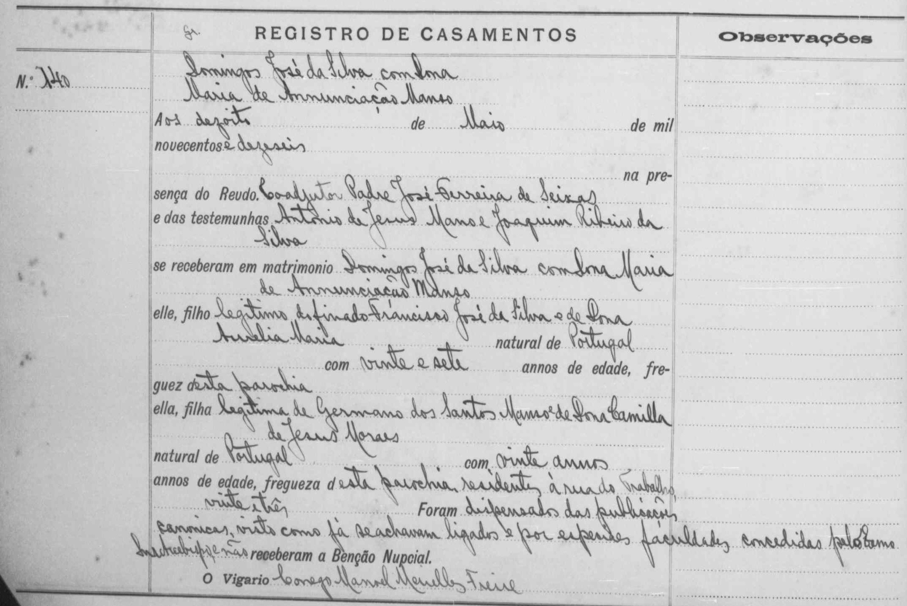 REGISTRO DE CASAMENTOS
Observações
N.º 140
Domingos José da Silva com Dona
Maria de Annunciação Manso
Aos dezoito de Maio de mil
novecentos e dezeseis
na pre-
sença do Reudo. Coadjutor Padre José Ferreira de Seixas
e das testemunhas Antonio de Jesus Manso e Joaquim Ribeiro da
Silva
se receberam em matrimonio Domingos José da Silva com Dona Maria
de Annunciação Manso
elle, filho legitimo do finado Francisco José da Silva e de Dona
Aurelia Maria natural de Portugal
com vinte e sete annos de edade, fre-
guez desta parochia
ella, filha legitima de Germano dos Santos Manso e de Dona Camilla
de Jesus Moraes
natural de Portugal com vinte annos
annos de edade, fregueza desta parochia, residentes à rua do Trabalho
vinte e três Foram dispensados das publicações
canonicas, visto como já se achavam ligados e por especiaes faculdades concedidas pelo Exmo
e não receberam a Benção Nupcial.
O Vigario Conego Manoel Meirelles Freire